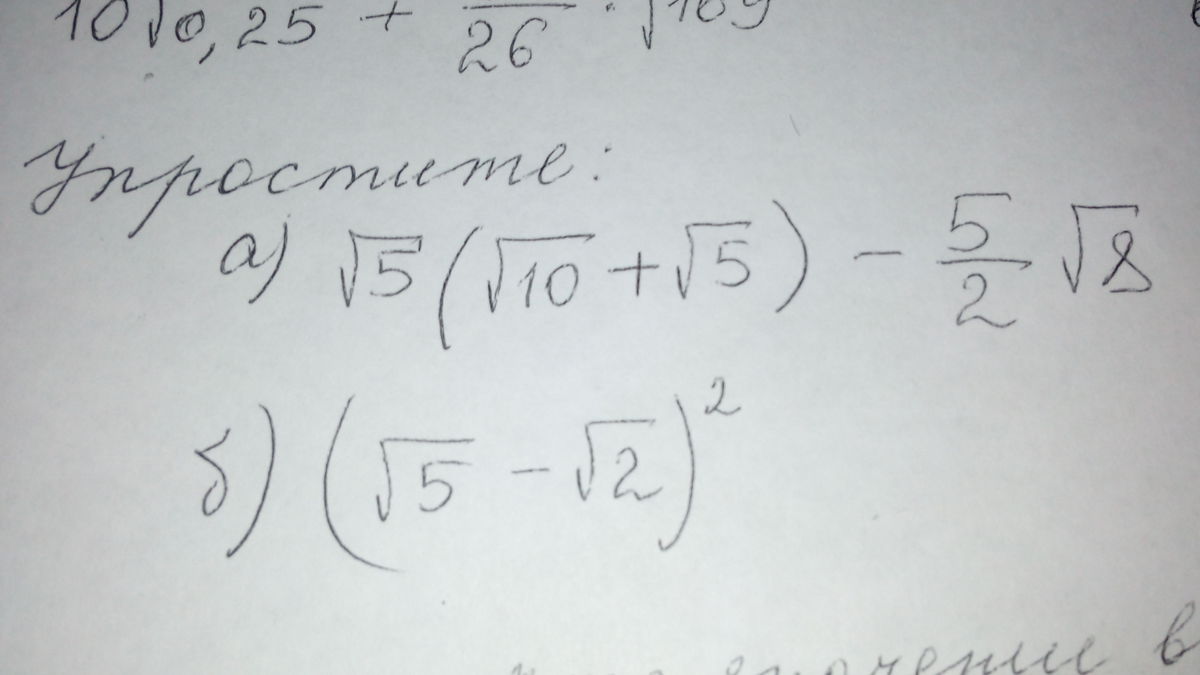 10√0,25 + /26 · √169
Упростите:
а) √5(√10 + √5) − 5/2 √8
б) (√5 − √2)²
в